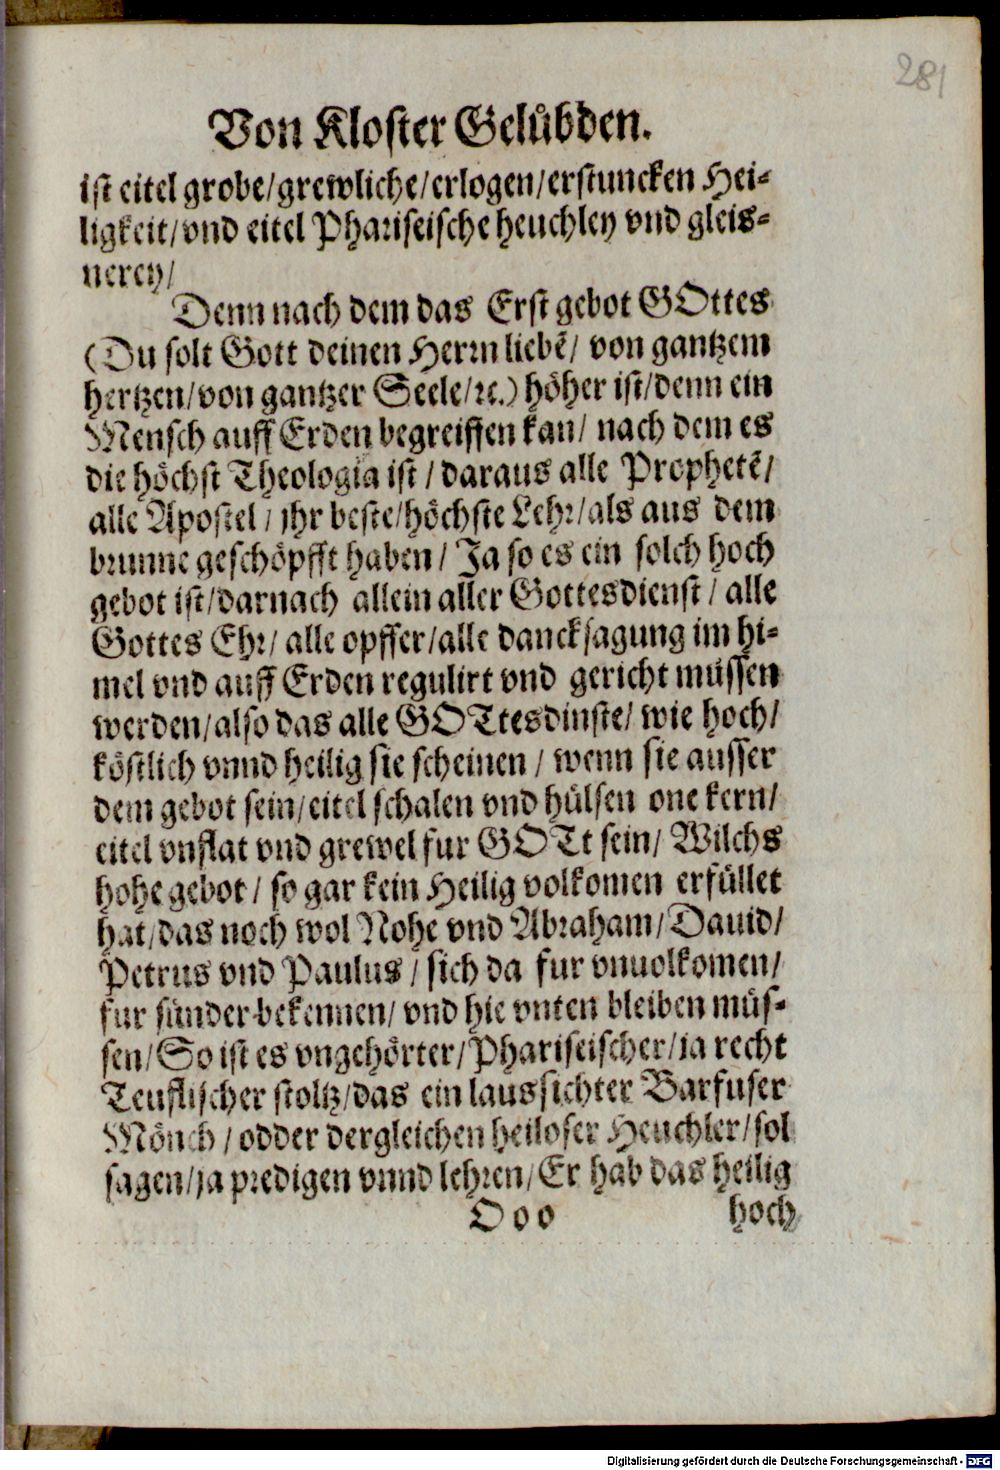 281
Von Kloster Gelübden.
ist eitel grobe/grewliche/erlogen/erstuncken Hei-
ligkeit/vnd eitel Phariseische heuchley vnd gleis-
nerey/
Denn nach dem das Erst gebot GOttes
(Du solt Gott deinen Herrn liebẽ/ von gantzem
hertzen/von gantzer Seele/ꝛc.) höher ist/denn ein
Mensch auff Erden begreiffen kan/ nach dem es
die höchst Theologia ist/daraus alle Prophetẽ/
alle Apostel/ jhr beste/höchste Lehr/als aus dem
brunne geschöpfft haben/ Ja so es ein solch hoch
gebot ist/darnach allein aller Gottesdienst/ alle
Gottes Ehr/ alle opffer/alle dancksagung im hi-
mel vnd auff Erden regulirt vnd gericht müssen
werden/also das alle GOTtesdinste/ wie hoch/
köstlich vnnd heilig sie scheinen/ wenn sie ausser
dem gebot sein/eitel schalen vnd hülsen one kern/
eitel vnflat vnd grewel fur GOTt sein/ Wilchs
hohe gebot/ so gar kein Heilig volkomen erfüllet
hat/das noch wol Nohe vnd Abraham/Dauid/
Petrus vnd Paulus/ sich da fur vnuolkomen/
fur sünder bekennen/ vnd hie vnten bleiben müs-
sen/So ist es vngehörter/Phariseischer/ja recht
Teuflischer stoltz/das ein laussichter Barfuser
Mönch/odder dergleichen heiloser Heuchler/sol
sagen/ja predigen vnnd lehren/Er hab das heilig
Ooo hoch
Digitalisierung gefördert durch die Deutsche Forschungsgemeinschaft - DFG